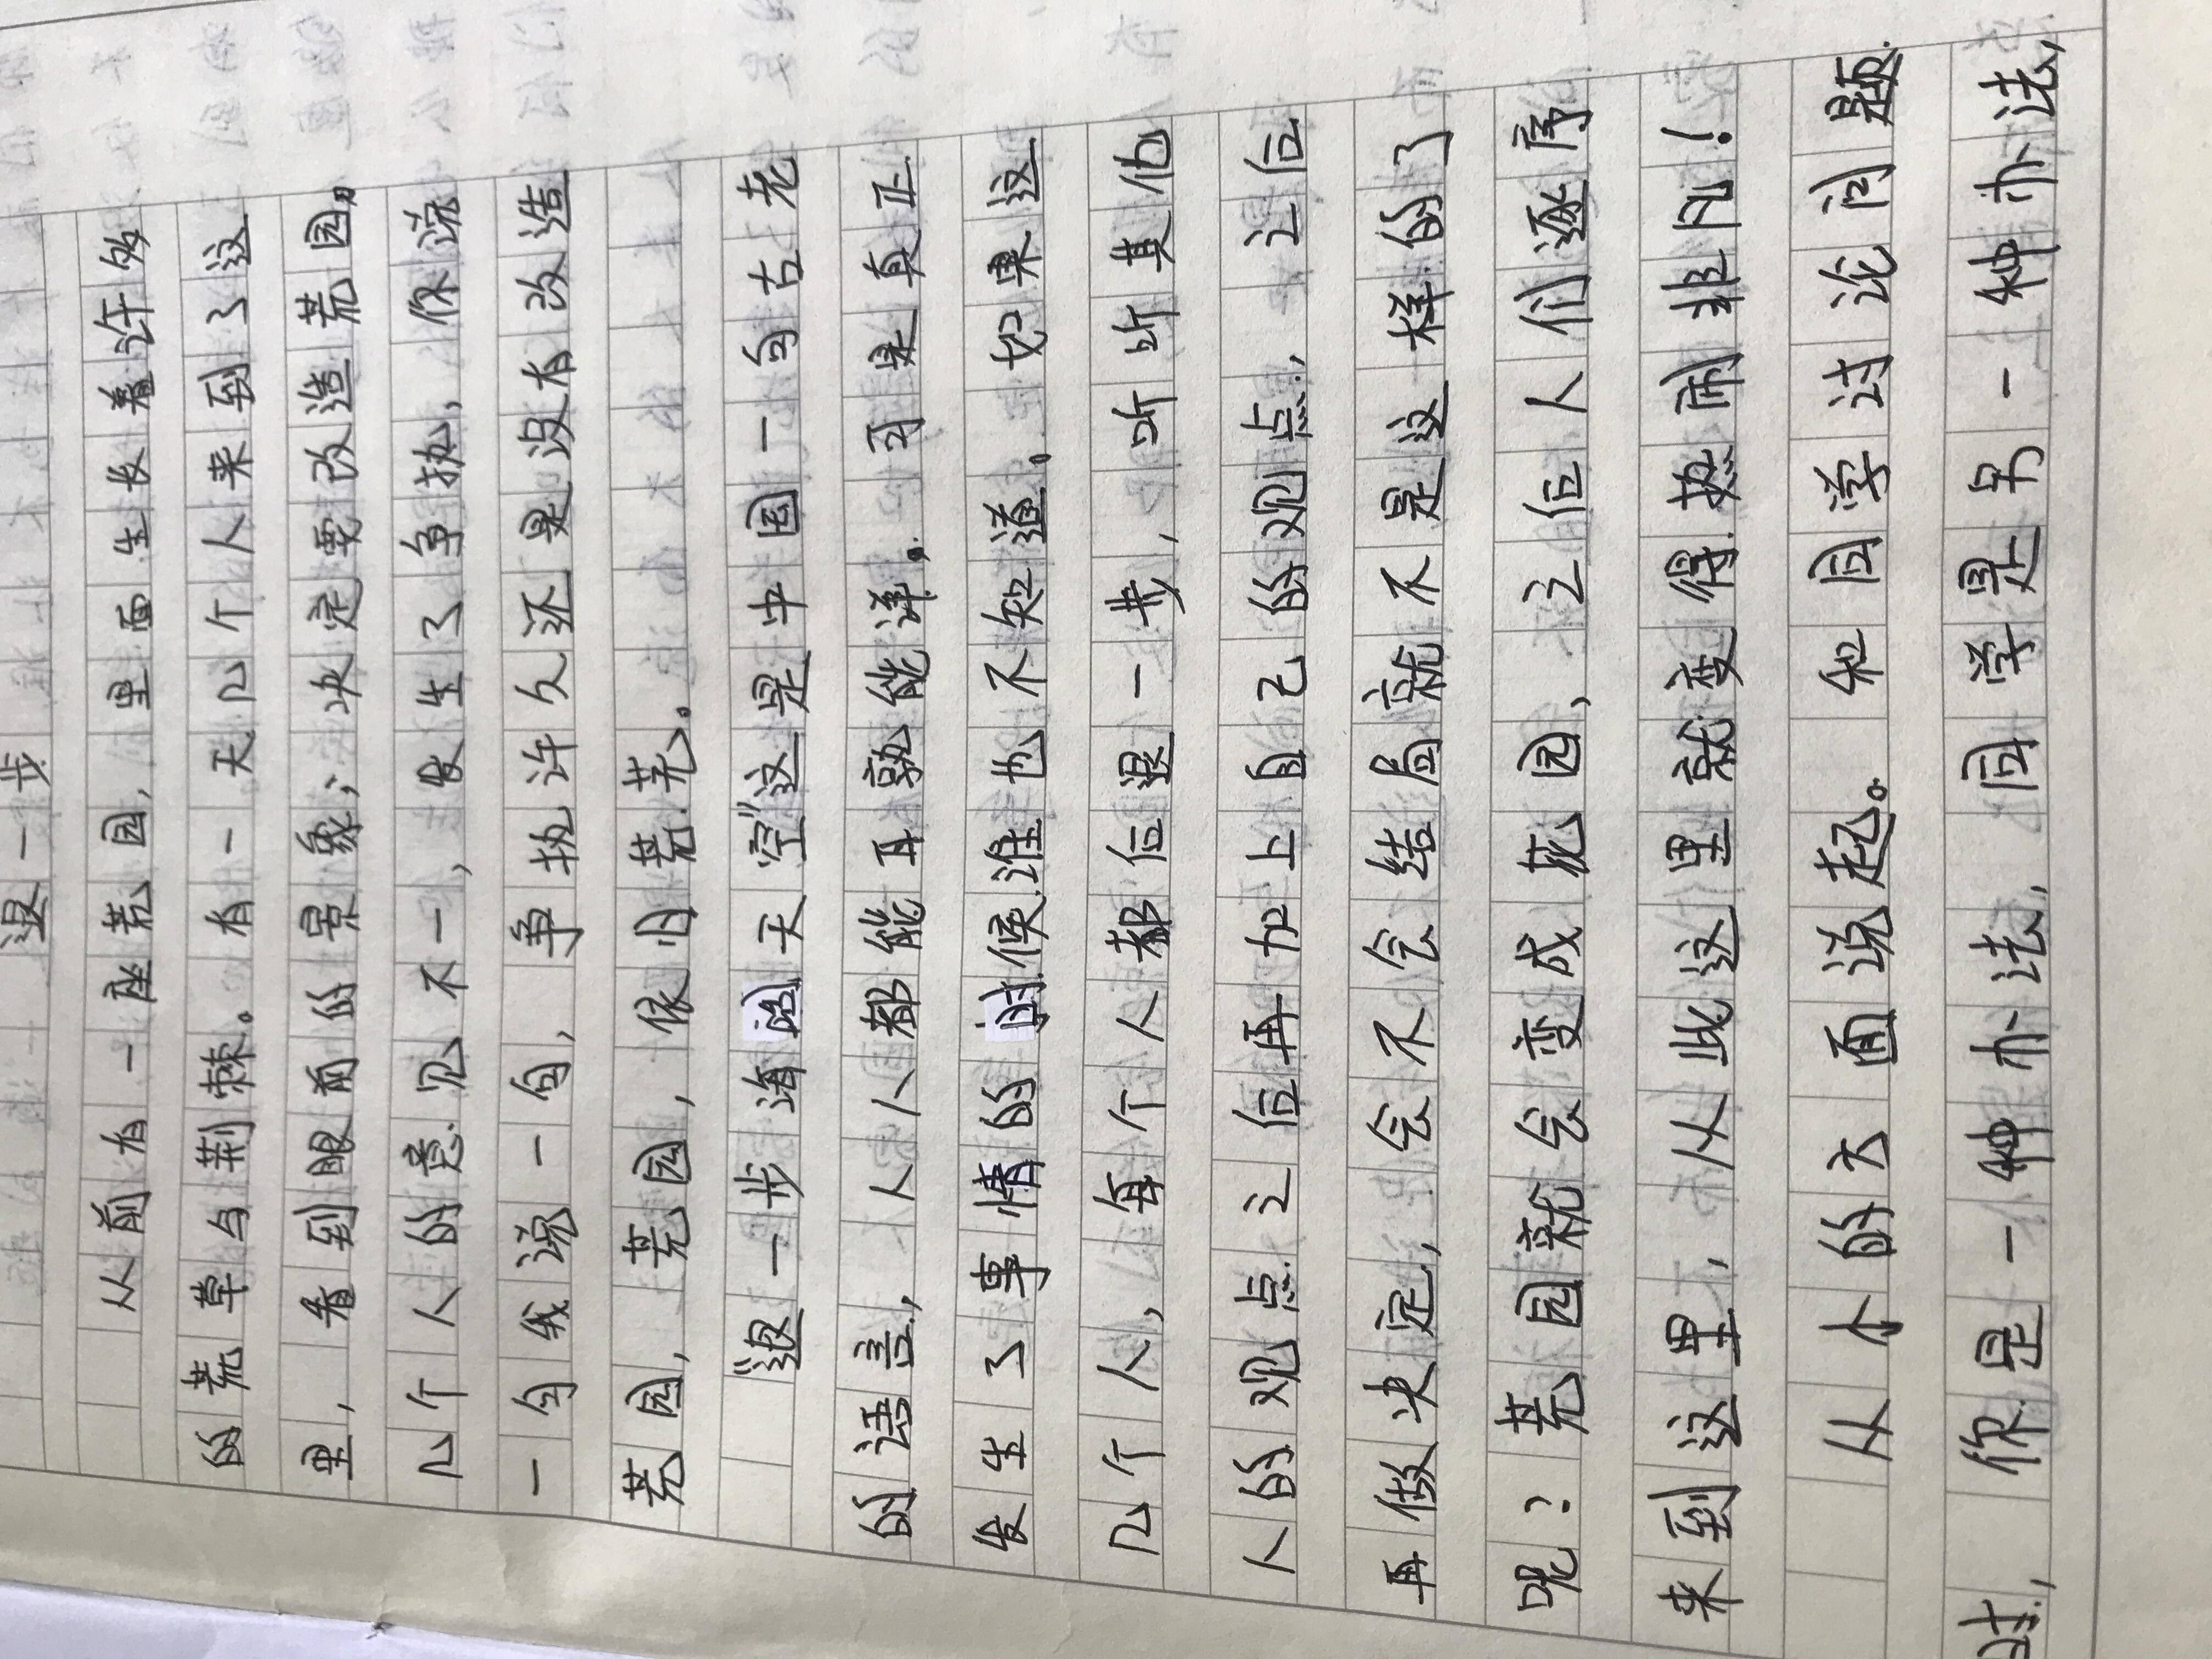 退一步
从前有一座荒园，里面生长着许多
的荒草与荆棘。有一天几个人来到了这
里，看到眼前的景象；决定要改造荒园。
几个人的意见不一，发生了争执，你说
一句我说一句，争执许久还是没有改造
荒园，荒园，依旧荒芜。
“退一步海阔天空”这是中国一句古老
的语言，人人都能耳熟能详。可是真正
发生了事情的时候谁也不知道。如果这
几个人，每个人都位退一步，听听其他
人的观点之位再加上自己的观点，之位
再做决定，会不会结局就不是这样的了
呢？荒园就会变成花园，之位人们逐序
来到这里，从此这里就变得热闹非凡！
从小的方面说起。和同学讨论问题
时，你是一种办法，同学是另一种办法，